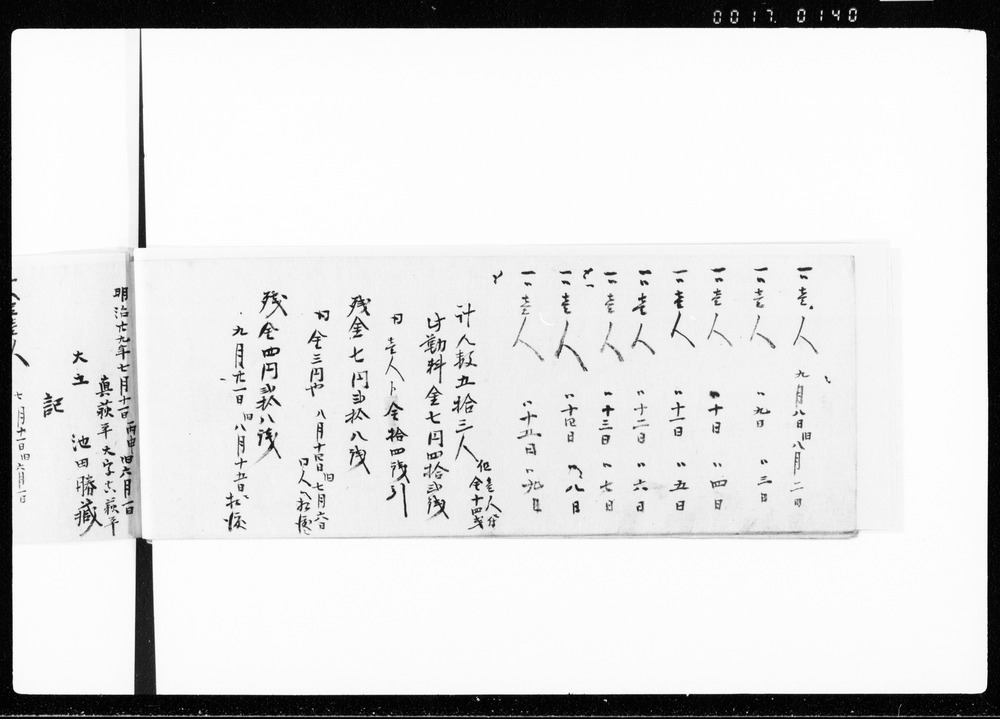 0017. 0140
一 壱人 九月八日 旧八月二日
一 壱人 〃九日 〃三日
一 壱人 〃十日 〃四日
一 壱人 〃十一日 〃五日
一 壱人 〃十二日 〃六日
一 壱人 〃十三日 〃七日
一 壱人 〃十四日 〃八日
一 壱人 〃十五日 〃九日
計人数五拾三人 但壱人ニ付金十四銭
此勤料金七円四拾弐銭
内 壱人卜金拾四銭引
残金七円弐拾八銭
内金三円也 八月十四日 旧七月六日 同人へ相渡
残金四円弐拾八銭
九月廿一日 旧八月十五日 相渡
明治廿九年七月十一日 丙申旧六月一日
真萩平大字古萩平
大工 池田勝蔵
記
壱人 七月十一日 旧六月一日